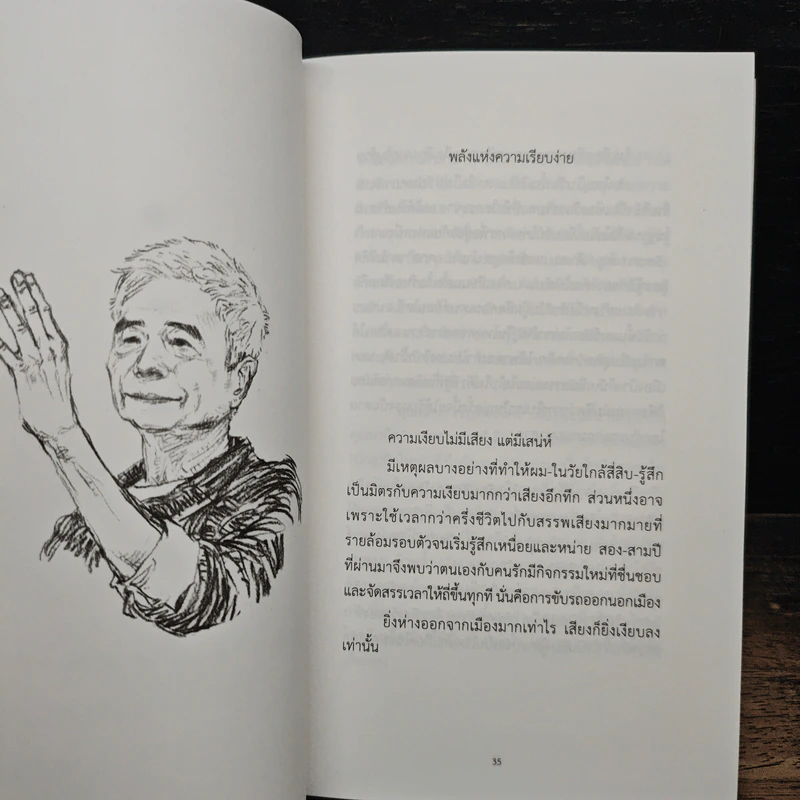 พลังแห่งความเรียบง่าย
ความเงียบไม่มีเสียง แต่มีเสน่ห์
มีเหตุผลบางอย่างที่ทำให้ผม-ในวัยใกล้สี่สิบ-รู้สึก
เป็นมิตรกับความเงียบมากกว่าเสียงอึกทึก ส่วนหนึ่งอาจ
เพราะใช้เวลากว่าครึ่งชีวิตไปกับสรรพเสียงมากมายที่
รายล้อมรอบตัวจนเริ่มรู้สึกเหนื่อยและหน่าย สอง-สามปี
ที่ผ่านมาจึงพบว่าตนเองกับคนรักมีกิจกรรมใหม่ที่ชื่นชอบ
และจัดสรรเวลาให้ถี่ขึ้นทุกที นั่นคือการขับรถออกนอกเมือง
ยิ่งห่างออกจากเมืองมากเท่าไร เสียงก็ยิ่งเงียบลง
เท่านั้น
35